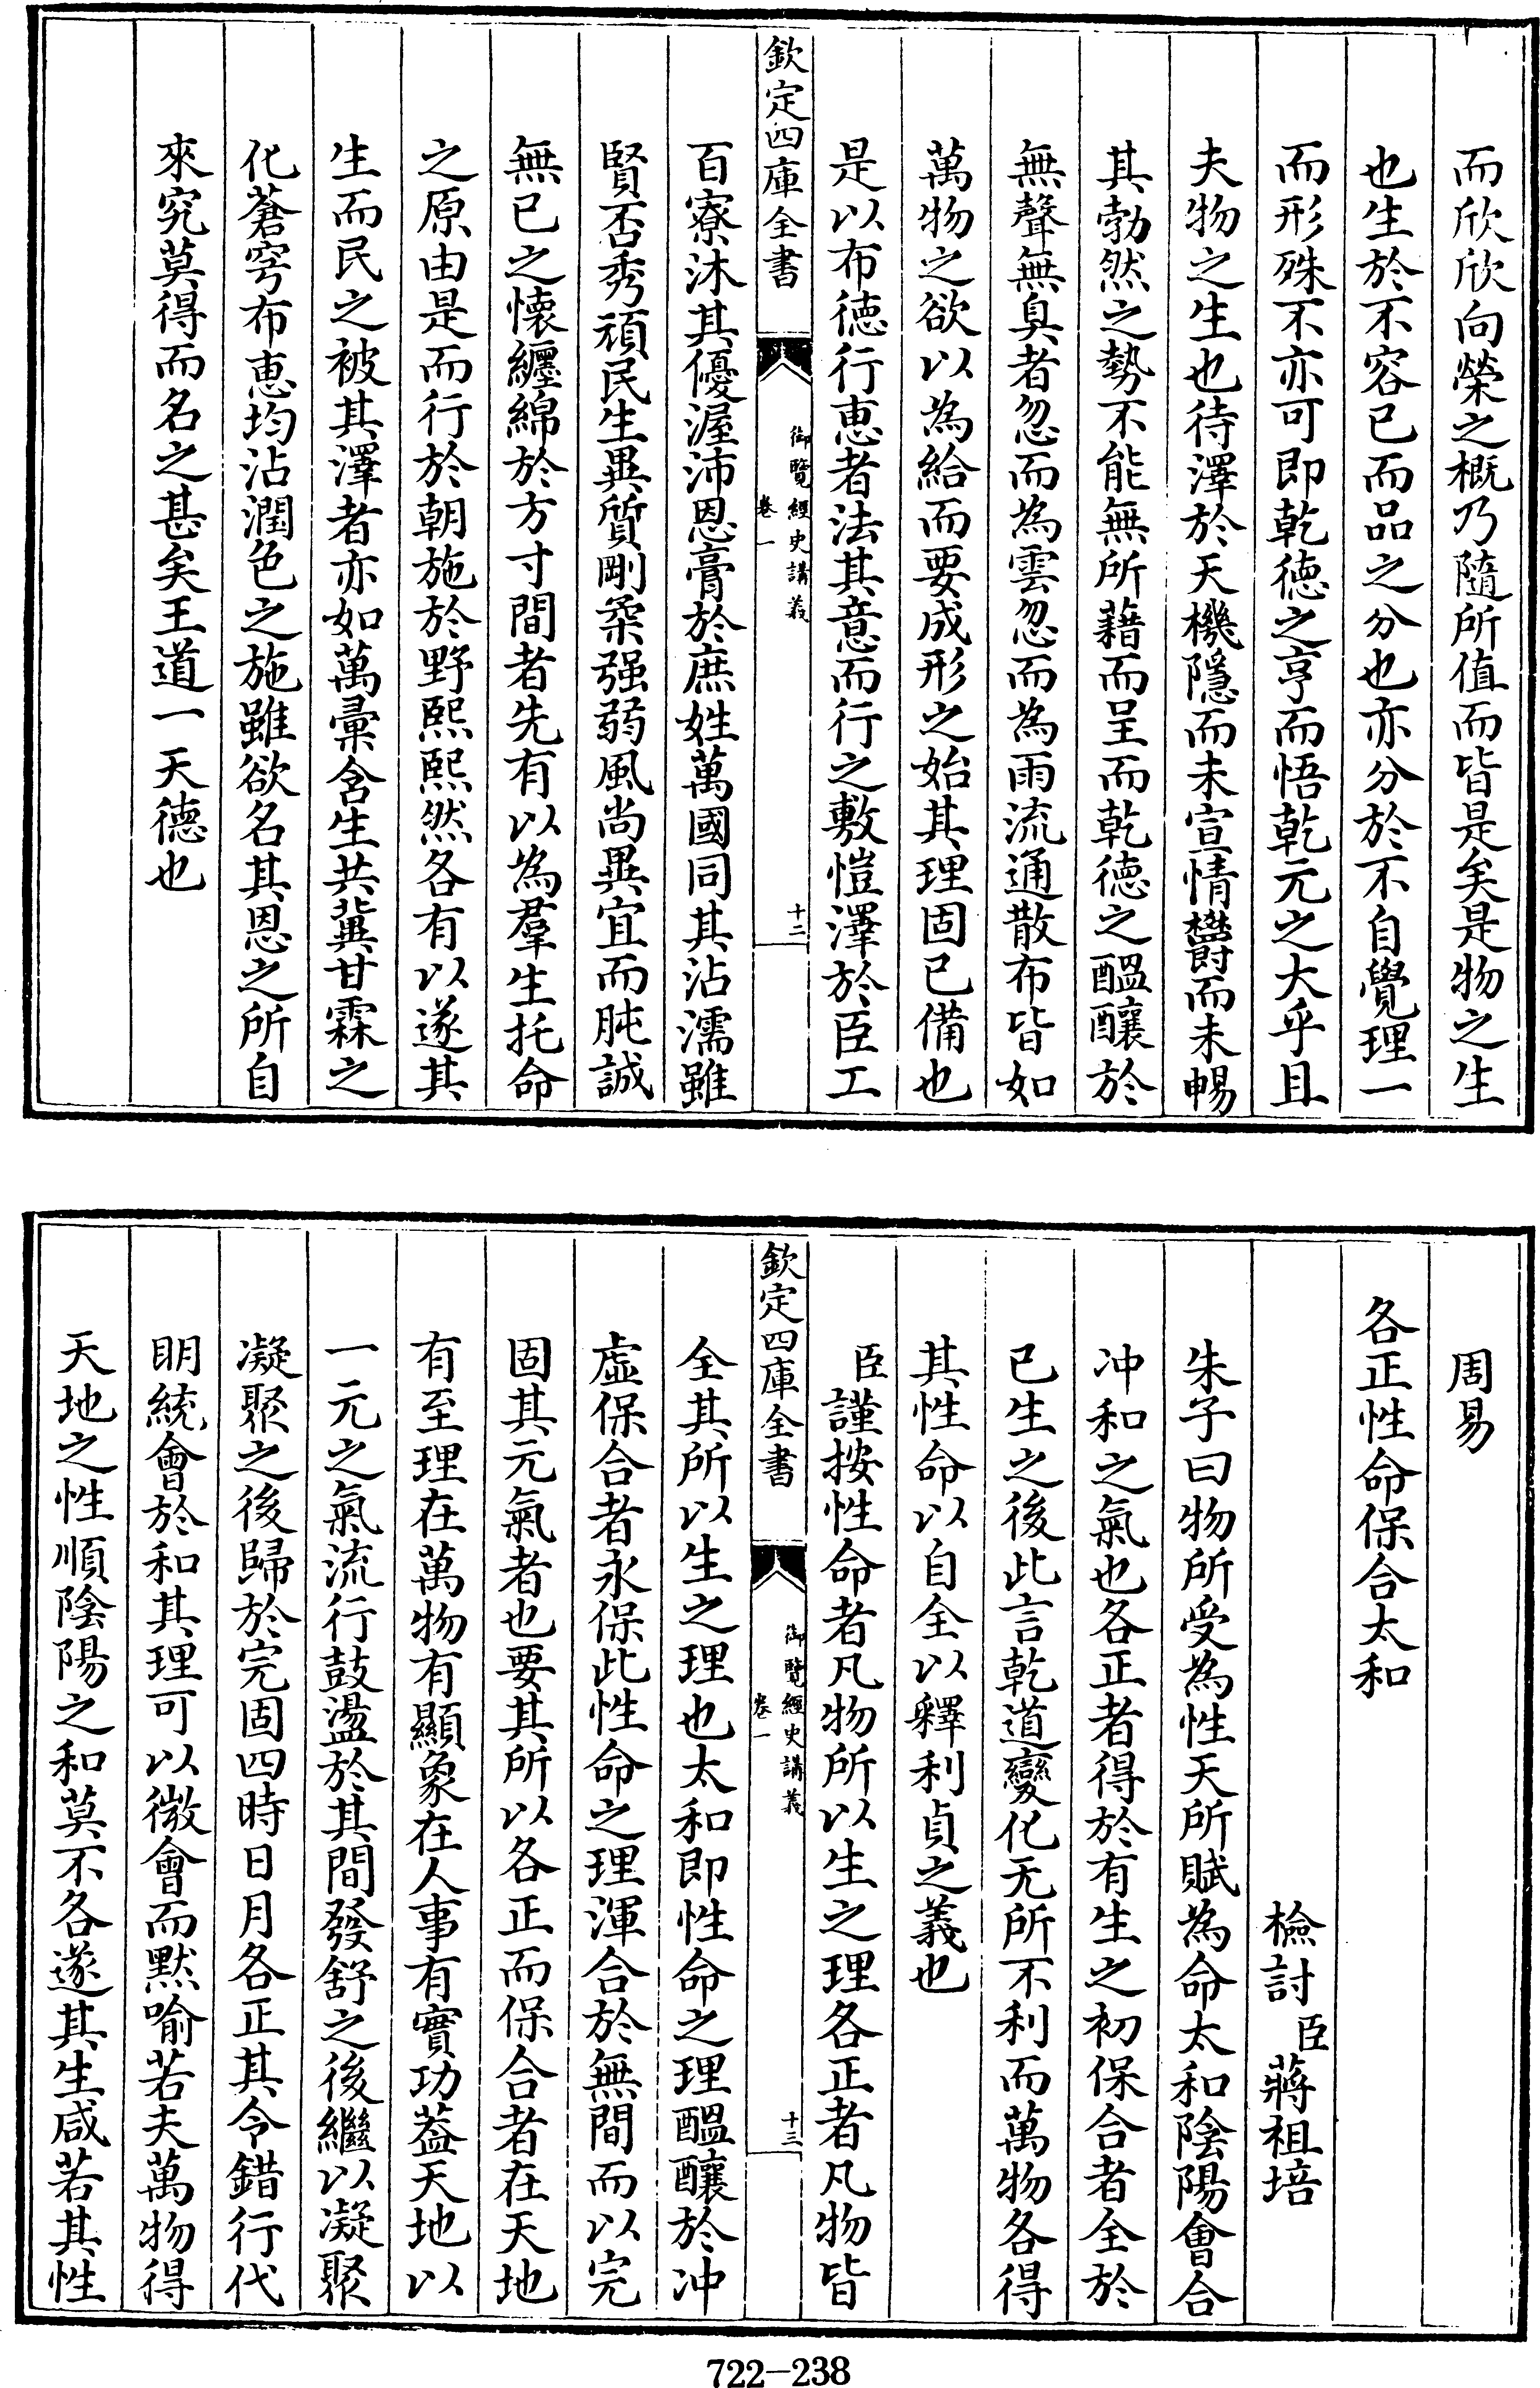 而欣欣向榮之概乃隨所值而皆是矣是物之生
也生於不容已而品之分也亦分於不自覺理一
而形殊不亦可即乾徳之亨而悟乾元之大乎且
夫物之生也待澤於天機隱而未宣情欝而未暢
其勃然之勢不能無所藉而呈而乾徳之醖釀於
無聲無臭者忽而為雲忽而為雨流通散布皆如
萬物之欲以為給而要成形之始其理固已備也
是以布徳行恵者法其意而行之敷愷澤於臣工
欽定四庫全書
御覽經史講義
卷一
十二
百寮沐其優渥沛恩膏於庶姓萬國同其沾濡雖
賢否秀頑民生異質剛柔强弱風尚異宜而肫誠
無已之懐纒綿於方寸間者先有以為羣生托命
之原由是而行於朝施於野熙熙然各有以遂其
生而民之被其澤者亦如萬彚含生共冀甘霖之
化蒼穹布恵均沾潤色之施雖欲名其恩之所自
來究莫得而名之甚矣王道一天徳也
周易
各正性命保合太和
檢討臣蔣祖培
朱子曰物所受為性天所賦為命太和陰陽會合
冲和之氣也各正者得於有生之初保合者全於
已生之後此言乾道變化无所不利而萬物各得
其性命以自全以釋利貞之義也
臣謹按性命者凡物所以生之理各正者凡物皆
欽定四庫全書
御覽經史講義
卷一
十三
全其所以生之理也太和即性命之理醖釀於冲
虚保合者永保此性命之理渾合於無間而以完
固其元氣者也要其所以各正而保合者在天地
有至理在萬物有顯象在人事有實功葢天地以
一元之氣流行鼓盪於其間發舒之後繼以凝聚
凝聚之後歸於完固四時日月各正其令錯行代
明統會於和其理可以微會而黙喻若夫萬物得
天地之性順陰陽之和莫不各遂其生咸若其性
722-238